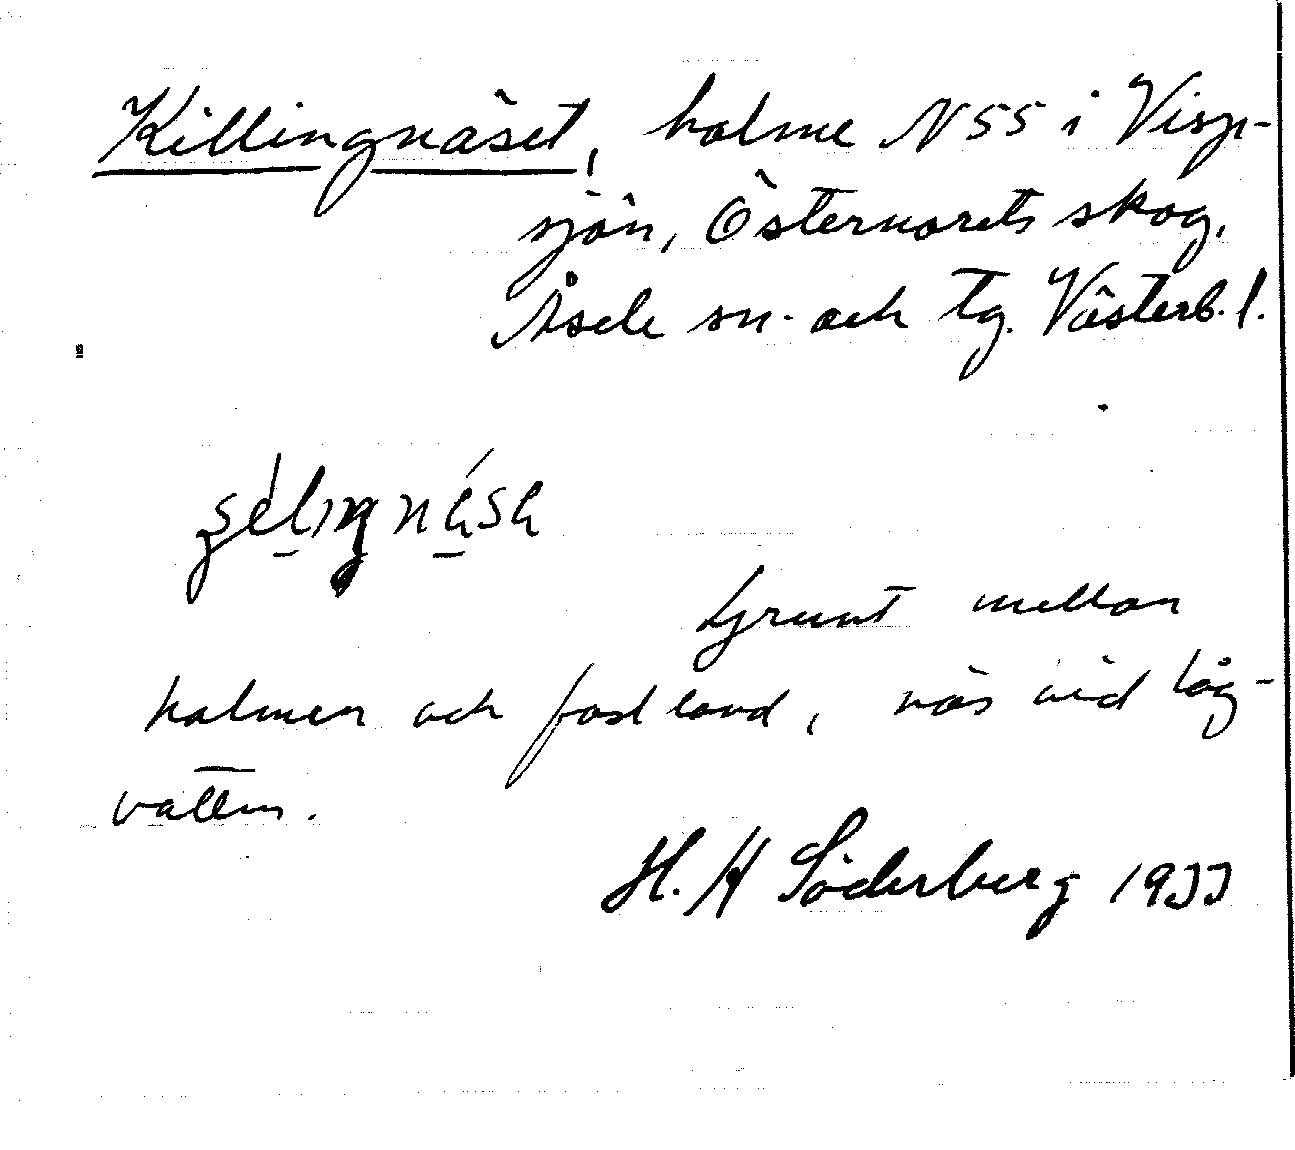 Killingnäset, holme N 55 i Visp-
sjön, Östernorets skog,
Åsele sn. och tg. Västerb. l.
Grunt mellan
holmen och fastland, näs vid låg-
vatten.
H. H Söderberg 1933